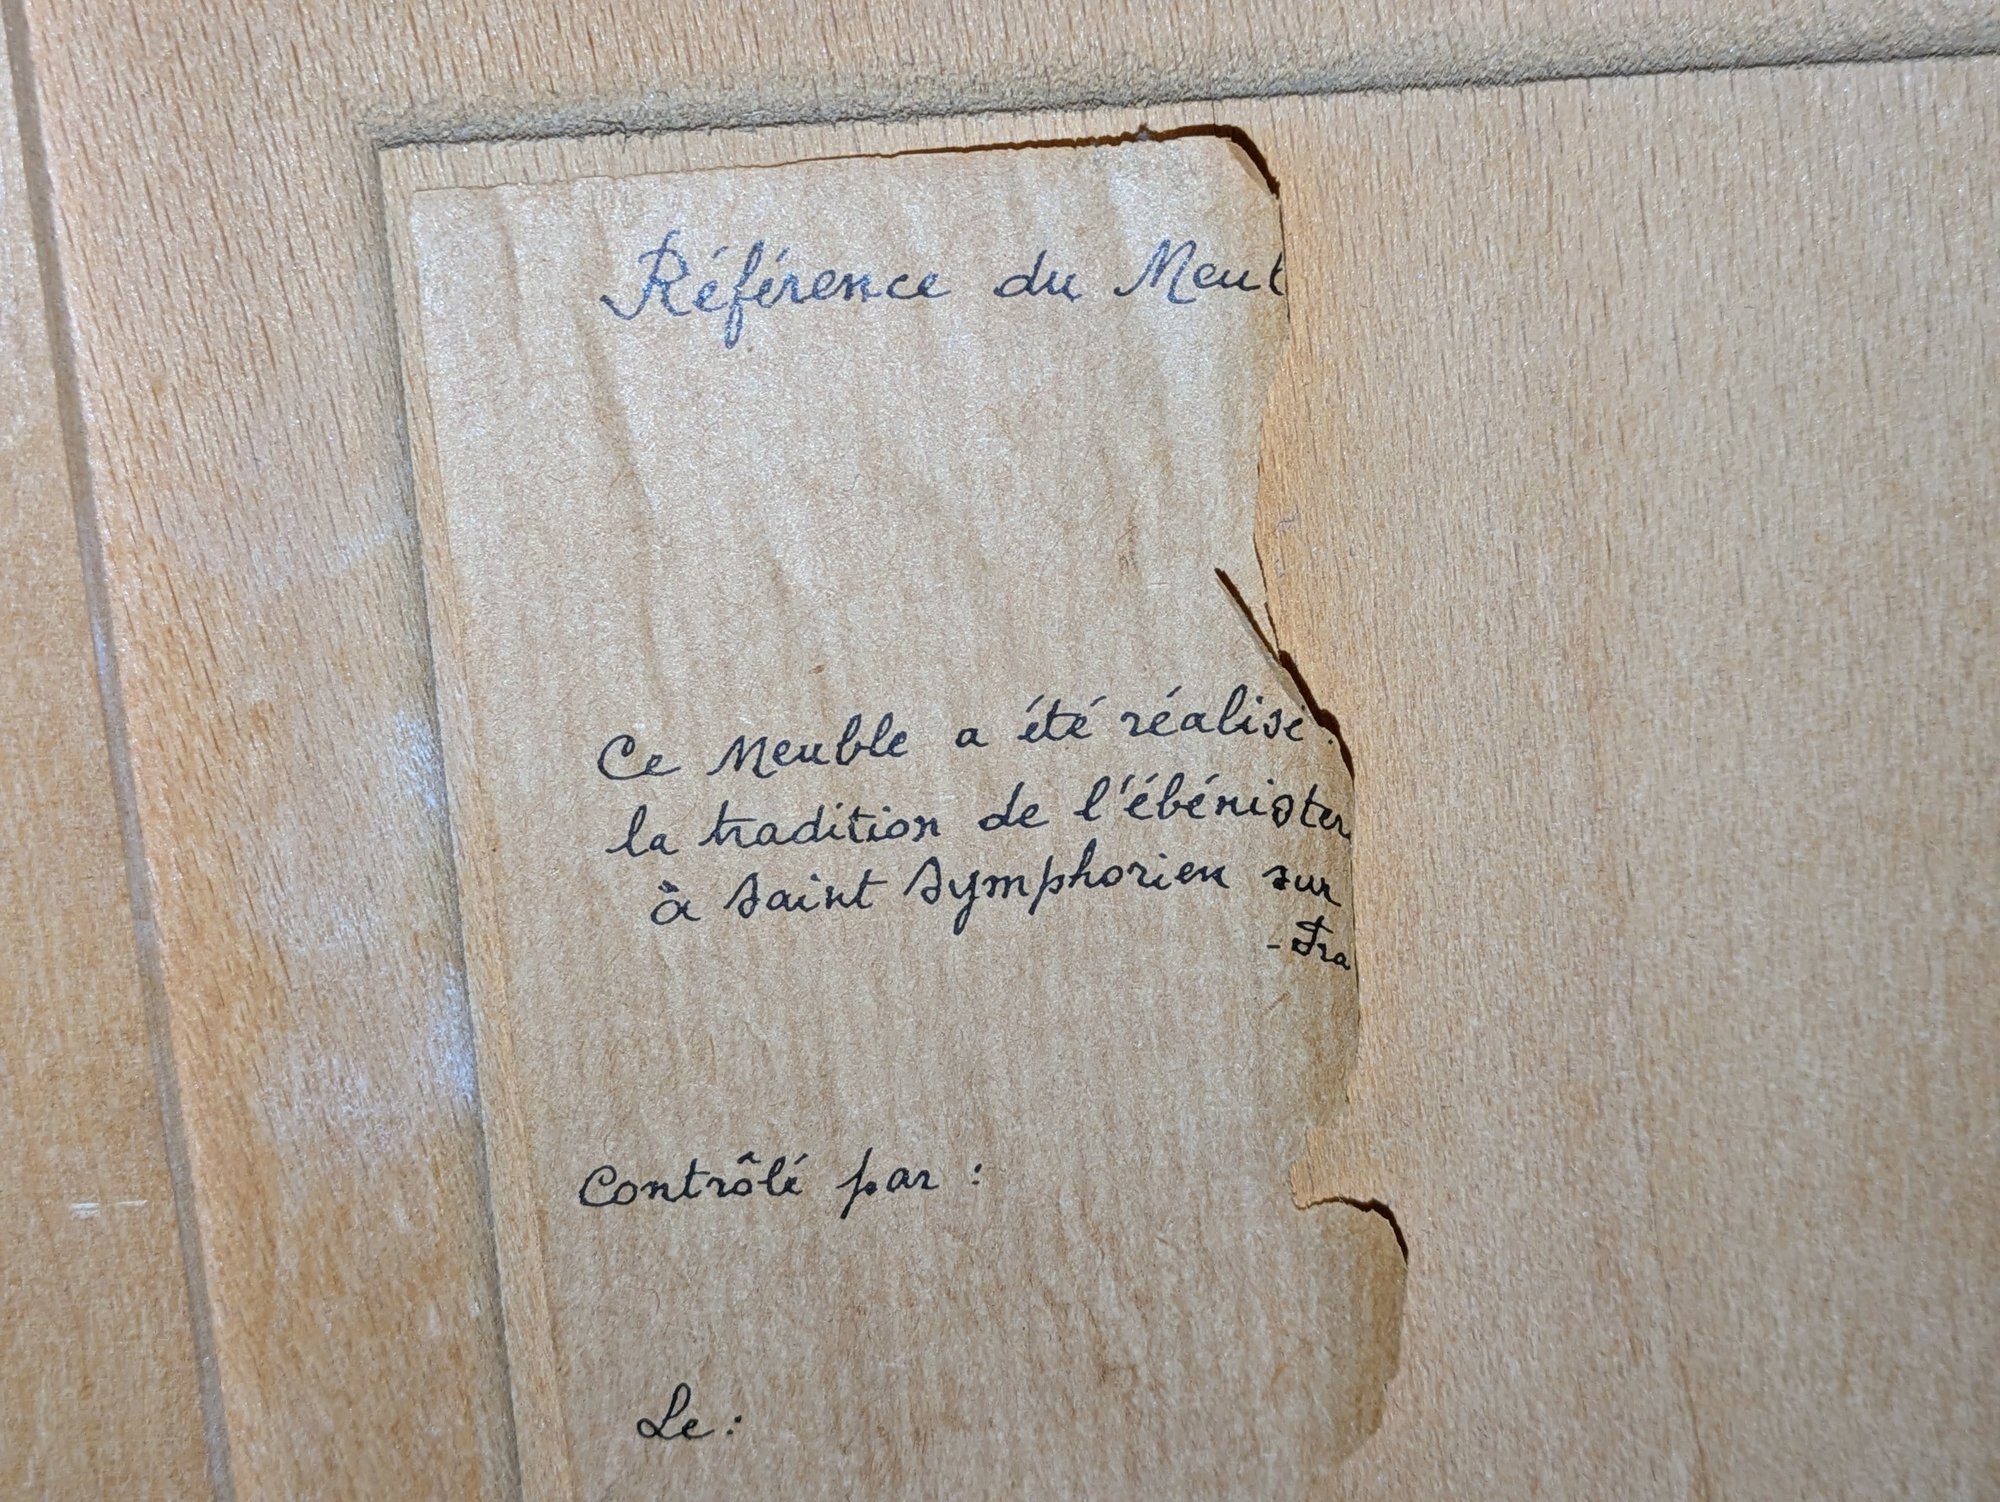 Référence du Meub
Ce Meuble a été réalisé
la tradition de l'ébénister
à Saint Symphorien sur
- Fra
Contrôlé par :
Le :